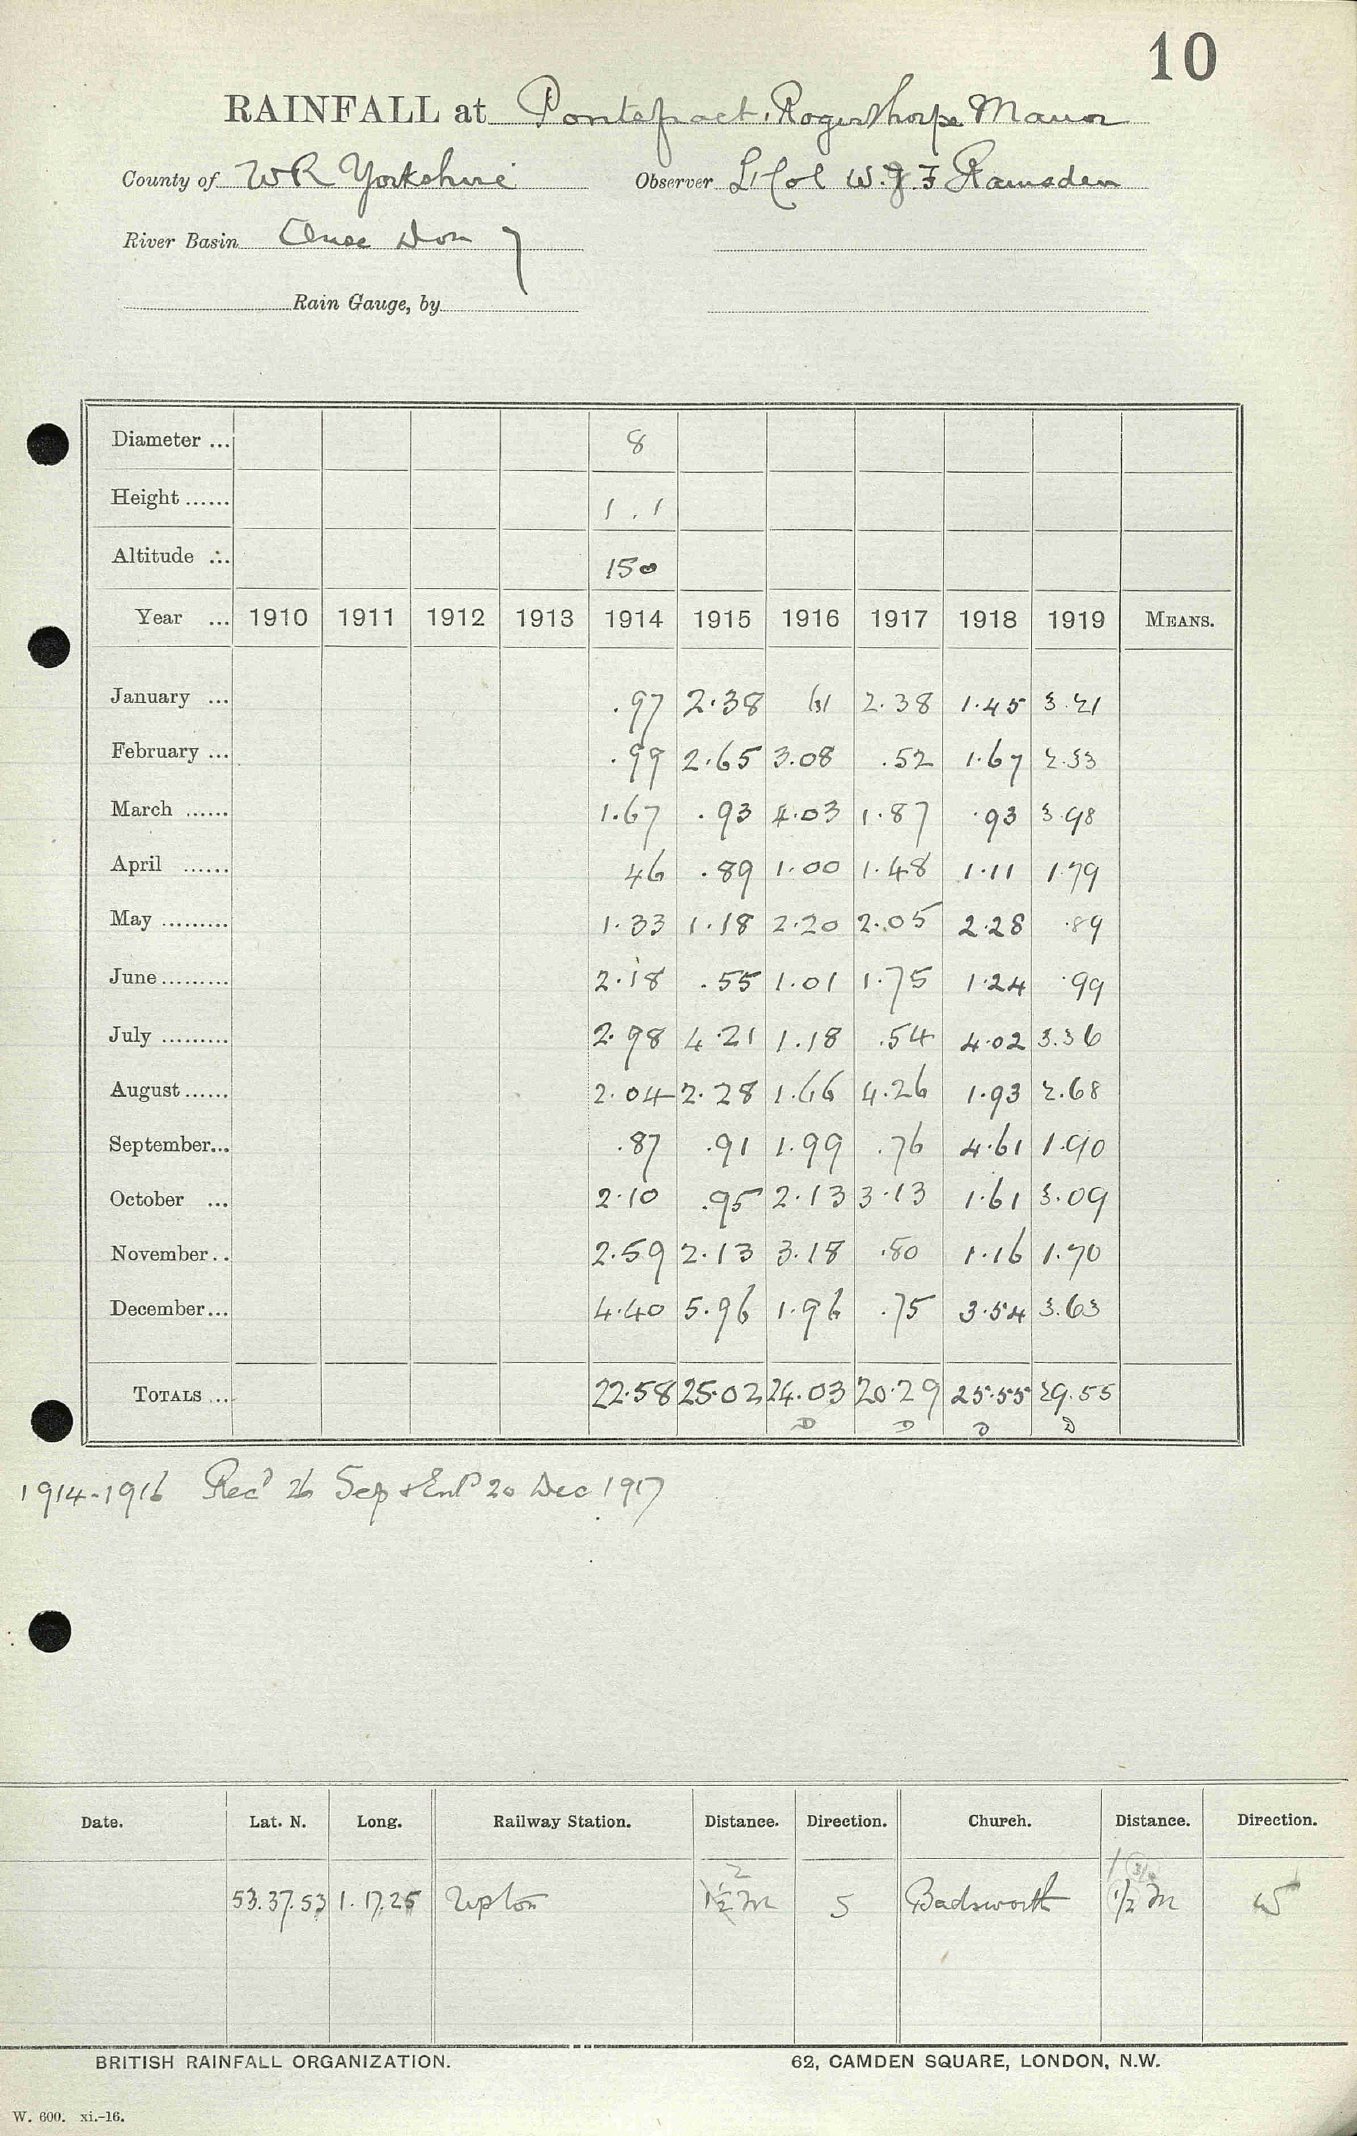 10
RAINFALL at Pontefract, Rogerthorpe Manor
County of WR Yorkshire Observer Lt Col W.J.F Ramsden
River Basin Ouse Don 7
Rain Gauge, by
Diameter ... 8
Height ...... 1.1
Altitude ... 150
Year ... 1910 1911 1912 1913 1914 1915 1916 1917 1918 1919 MEANS.
January ... .97 2.38 61 2.38 1.45 3.21
February ... .99 2.65 3.08 .52 1.67 2.33
March ...... 1.67 .93 4.03 1.87 .93 3.98
April ...... 46 .89 1.00 1.48 1.11 1.79
May ......... 1.33 1.18 2.20 2.05 2.28 .89
June ......... 2.18 .55 1.01 1.75 1.24 .99
July ......... 2.98 4.21 1.18 .54 4.02 3.36
August ...... 2.04 2.28 1.66 4.26 1.93 2.68
September... .87 .91 1.99 .76 4.61 1.90
October ... 2.10 .95 2.13 3.13 1.61 3.09
November.. 2.59 2.13 3.18 .80 1.16 1.70
December... 4.40 5.96 1.96 .75 3.54 3.63
TOTALS ... 22.58 25.02 24.03 20.29 25.55 29.55
D D D D
1914-1916 Recd 26 Sep & Entd 20 Dec 1917
Date. Lat. N. Long. Railway Station. Distance. Direction. Church. Distance. Direction.
2 1 3/4
53.37.53 1.17.25 Upton 1½ M S Badsworth 1/2 M W
BRITISH RAINFALL ORGANIZATION. 62, CAMDEN SQUARE, LONDON, N.W.
W. 600. xi.-16.